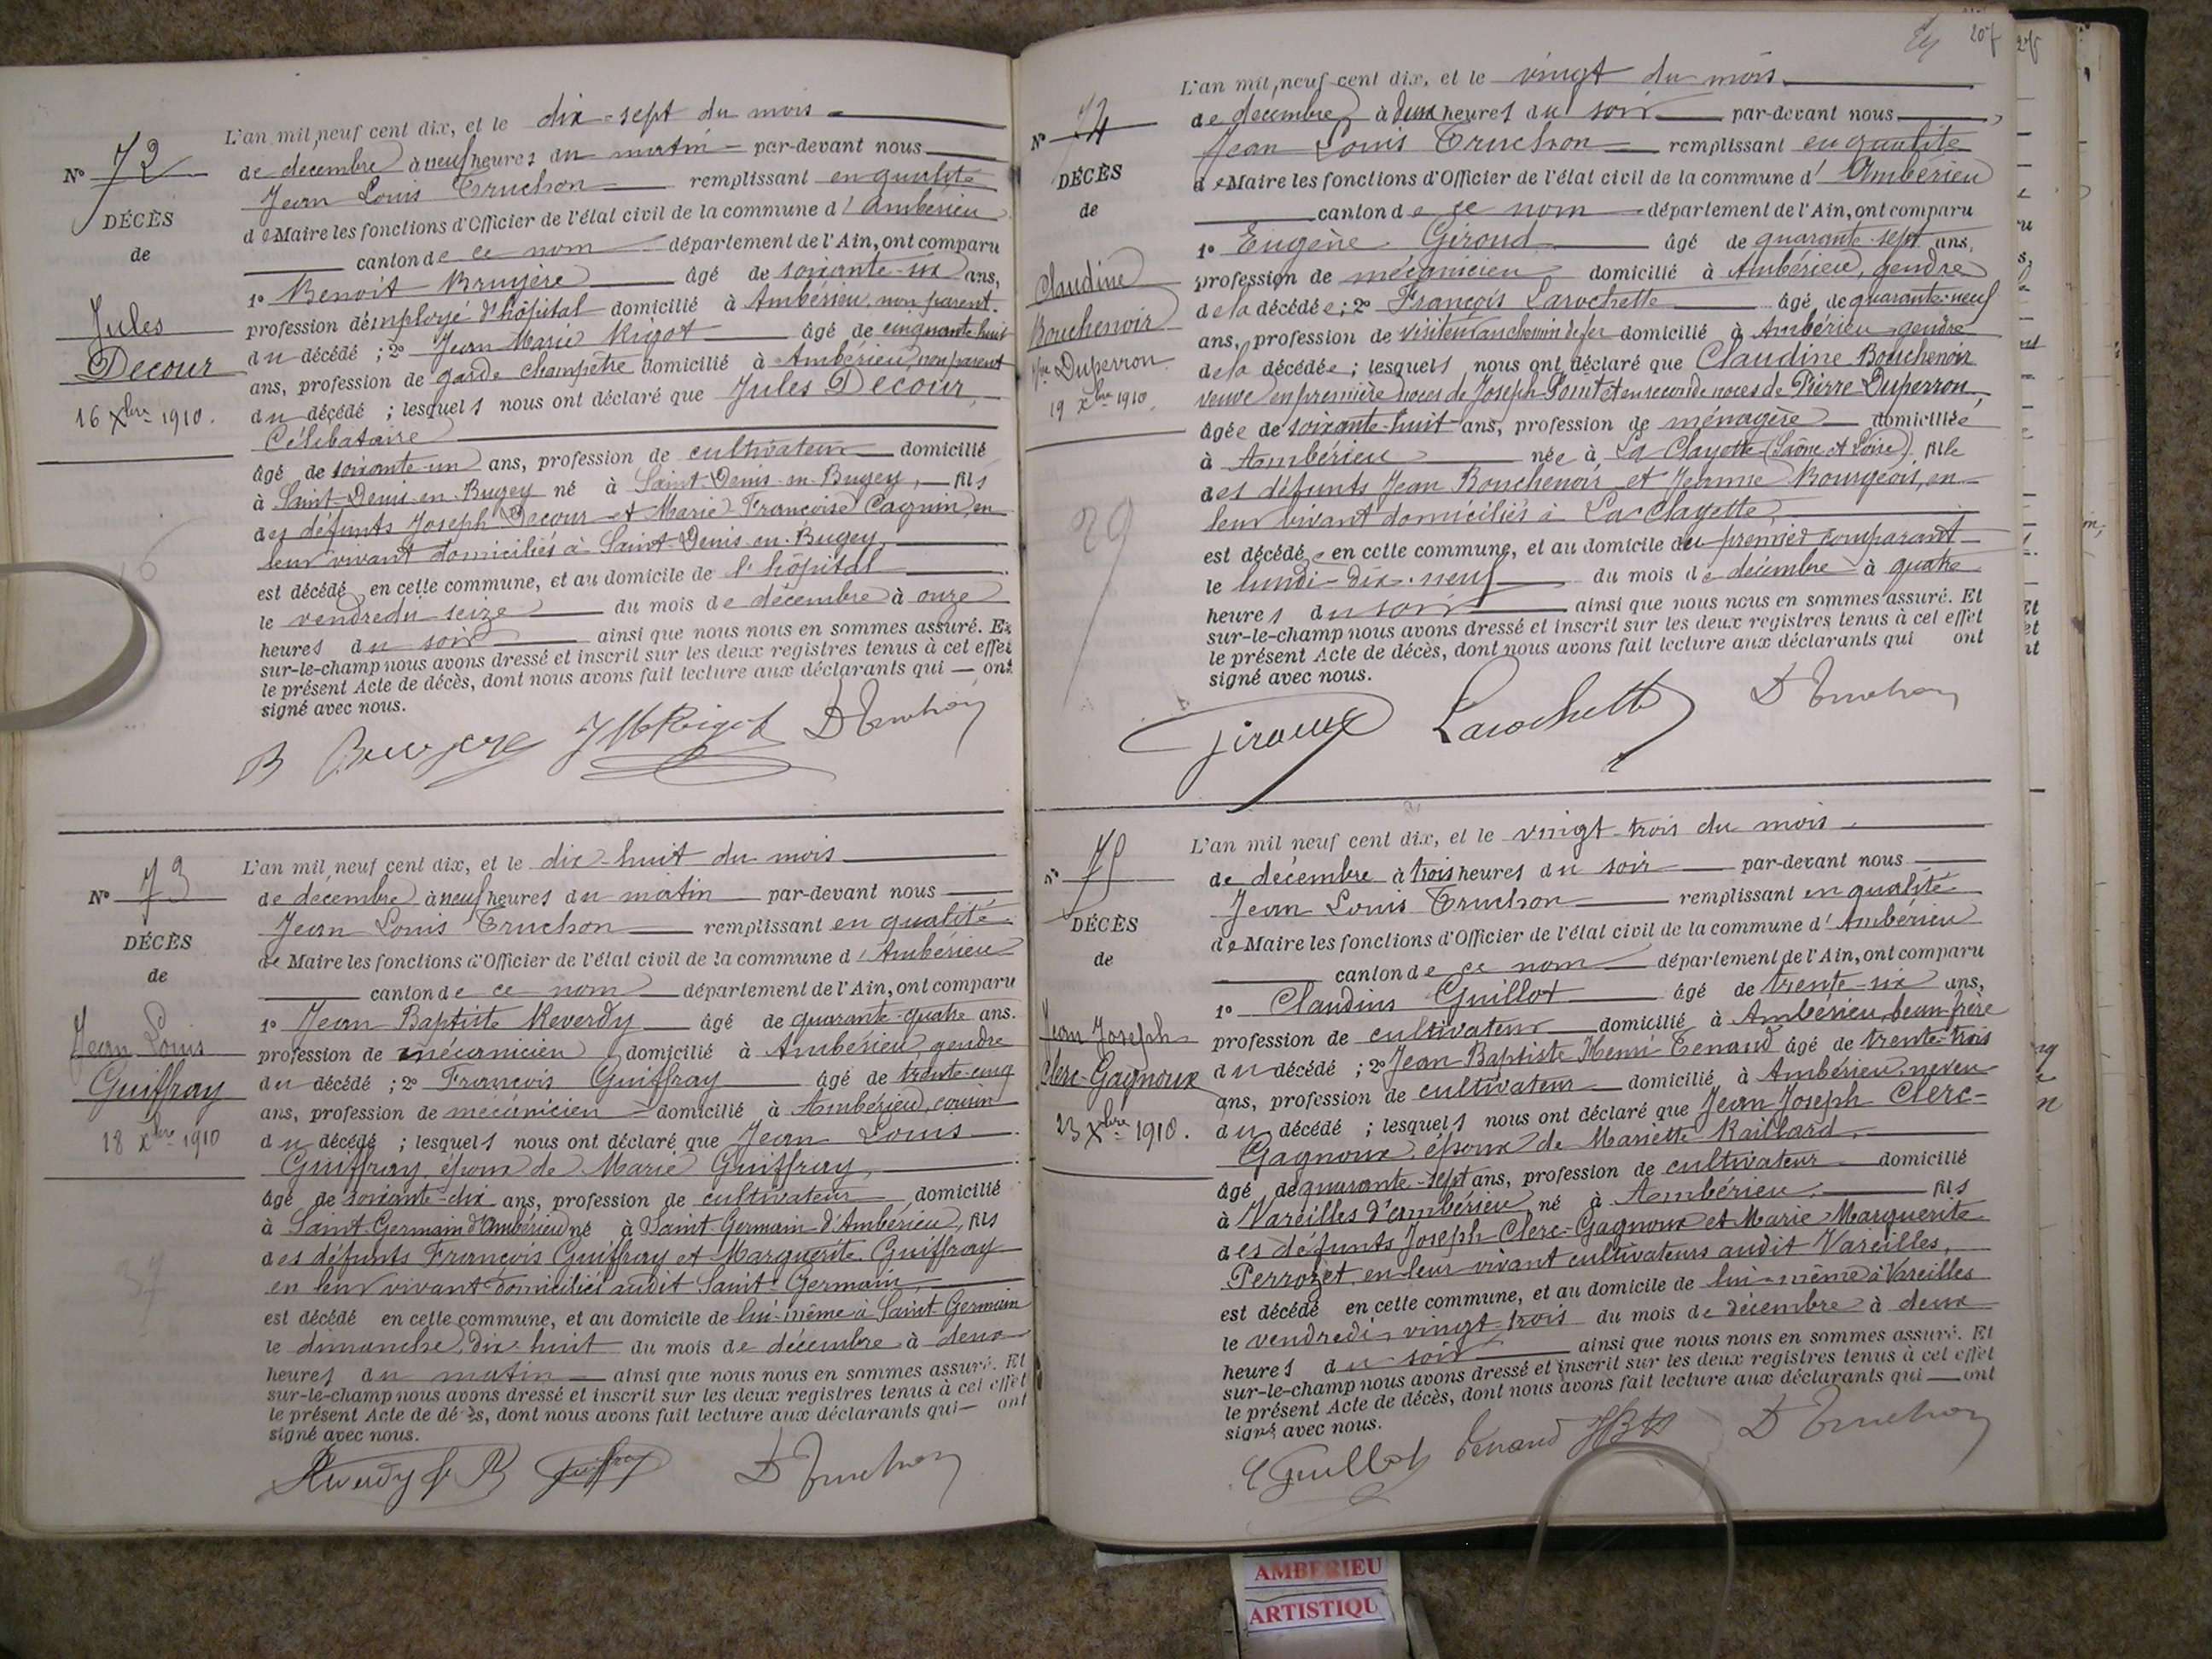 N° 72
DÉCÈS
de
Jules
Decour
16 Xbre 1910.
L'an mil neuf cent dix, et le dix-sept du mois
de décembre à neuf heures du matin par-devant nous
Jean Louis Truchon remplissant en qualité
de Maire les fonctions d'Officier de l'état civil de la commune d'Ambérieu
canton de ce nom département de l'Ain, ont comparu
1° Benoit Bruyère âgé de soixante-six ans,
profession d'employé d'hôpital domicilié à Ambérieu, non parent
du décédé ; 2° Jean Marie Rigot âgé de cinquante-huit
ans, profession de garde champêtre domicilié à Ambérieu, non parent
du décédé ; lesquels nous ont déclaré que Jules Decour,
Célibataire
âgé de soixante-un ans, profession de cultivateur domicilié
à Saint-Denis-en-Bugey né à Saint-Denis-en-Bugey, fils
des défunts Joseph Decour et Marie Françoise Cagnin, en
leur vivant domiciliés à Saint-Denis-en-Bugey,
est décédé en cette commune, et au domicile de l'hôpital
le vendredi seize du mois de décembre à onze
heures du soir ainsi que nous nous en sommes assuré. Et
sur-le-champ nous avons dressé et inscrit sur les deux registres tenus à cet effet
le présent Acte de décès, dont nous avons fait lecture aux déclarants qui ont
signé avec nous.
B Bruyere JM Rigot D Truchon
N° 73
DÉCÈS
de
Jean Louis
Guiffray
18 Xbre 1910
L'an mil neuf cent dix, et le dix-huit du mois
de décembre à neuf heures du matin par-devant nous
Jean Louis Truchon remplissant en qualité
de Maire les fonctions d'Officier de l'état civil de la commune d'Ambérieu
canton de ce nom département de l'Ain, ont comparu
1° Jean Baptiste Reverdy âgé de quarante-quatre ans.
profession de mécanicien domicilié à Ambérieu, gendre
du décédé ; 2° François Guiffray âgé de trente-cinq
ans, profession de mécanicien domicilié à Ambérieu, cousin
du décédé ; lesquels nous ont déclaré que Jean Louis
Guiffray, époux de Marie Guiffray,
âgé de soixante-dix ans, profession de cultivateur domicilié
à Saint-Germain d'Ambérieu né à Saint-Germain d'Ambérieu, fils
des défunts François Guiffray et Marguerite Guiffray
en leur vivant domiciliés audit Saint-Germain,
est décédé en cette commune, et au domicile de lui-même à Saint Germain
le dimanche dix-huit du mois de décembre à deux
heures du matin ainsi que nous nous en sommes assuré. Et
sur-le-champ nous avons dressé et inscrit sur les deux registres tenus à cet effet
le présent Acte de décès, dont nous avons fait lecture aux déclarants qui ont
signé avec nous.
Reverdy J B Guiffray D Truchon
207
N° 74
DÉCÈS
de
Claudine
Bouchenoir
Vve Duperron
19 Xbre 1910.
29
L'an mil neuf cent dix, et le vingt du mois
de décembre à deux heures du soir par-devant nous
Jean Louis Truchon remplissant en qualité
de Maire les fonctions d'Officier de l'état civil de la commune d'Ambérieu
canton de ce nom département de l'Ain, ont comparu
1° Eugène Giroud âgé de quarante-sept ans,
profession de mécanicien domicilié à Ambérieu, gendre
de la décédée ; 2° François Larochette âgé de quarante-neuf
ans, profession de visiteur au chemin de fer domicilié à Ambérieu gendre
de la décédée ; lesquels nous ont déclaré que Claudine Bouchenoir
veuve en première noces de Joseph Pointet en seconde noces de Pierre Duperron,
âgée de soixante-huit ans, profession de ménagère domiciliée
à Ambérieu née à La Clayette (Saône et Loire), fille
des défunts Jean Bouchenoir et Jeanne Bourgeois, en
leur vivant domiciliés à La Clayette,
est décédée en cette commune, et au domicile du premier comparant
le lundi dix-neuf du mois de décembre à quatre
heures du soir ainsi que nous nous en sommes assuré. Et
sur-le-champ nous avons dressé et inscrit sur les deux registres tenus à cet effet
le présent Acte de décès, dont nous avons fait lecture aux déclarants qui ont
signé avec nous.
Giroud Larochette D Truchon
N° 75
DÉCÈS
de
Jean Joseph
Clerc-Gagnoux
23 Xbre 1910.
L'an mil neuf cent dix, et le vingt-trois du mois
de décembre à trois heures du soir par-devant nous
Jean Louis Truchon remplissant en qualité
de Maire les fonctions d'Officier de l'état civil de la commune d'Ambérieu
canton de ce nom département de l'Ain, ont comparu
1° Claudius Guillot âgé de trente-six ans,
profession de cultivateur domicilié à Ambérieu, beau-frère
du décédé ; 2° Jean-Baptiste Henri Tenand âgé de trente-trois
ans, profession de cultivateur domicilié à Ambérieu, neveu
du décédé ; lesquels nous ont déclaré que Jean Joseph Clerc-
Gagnoux, époux de Mariette Raillard,
âgé de quarante-sept ans, profession de cultivateur domicilié
à Vareilles d'Ambérieu né à Ambérieu, fils
des défunts Joseph Clerc-Gagnoux et Marie Marguerite
Perrozet, en leur vivant cultivateurs audit Vareilles,
est décédé en cette commune, et au domicile de lui-même à Vareilles
le vendredi vingt-trois du mois de décembre à deux
heures du soir ainsi que nous nous en sommes assuré. Et
sur-le-champ nous avons dressé et inscrit sur les deux registres tenus à cet effet
le présent Acte de décès, dont nous avons fait lecture aux déclarants qui ont
signé avec nous.
C Guillot Tenand JBH D Truchon
AMBERIEU
ARTISTIQU